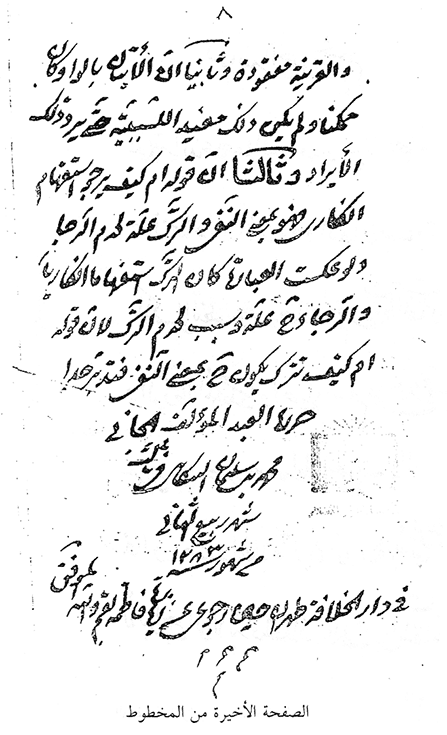 ٨
والقرينة مفقودة وثانيا ان الاتيان بالواو كان
ممكنا ولم يكن ذلك مفيد السببية حتى يرد ذلك
الأيراد وثالثا ان قوله ام كيف يرجو استفهام
انكارى فهو بمعنى النفى والترك علة لعدم الرجا
ولو عكست العبارة كان الترك استفهاما انكاريا
والرجاء ح علة وسبب لعدم الترك لان قوله
ام كيف تترك يكون ح بمعنى النفى فتدبر جدا
حررها العبد المؤلف الجانى
محمد بن سليمان التنكابنى
شهر ربيع الثانى
من شهور سنة ١٢٨٣
فى دار الخلافة طهران
م م م
م
الصفحة الأخيرة من المخطوط